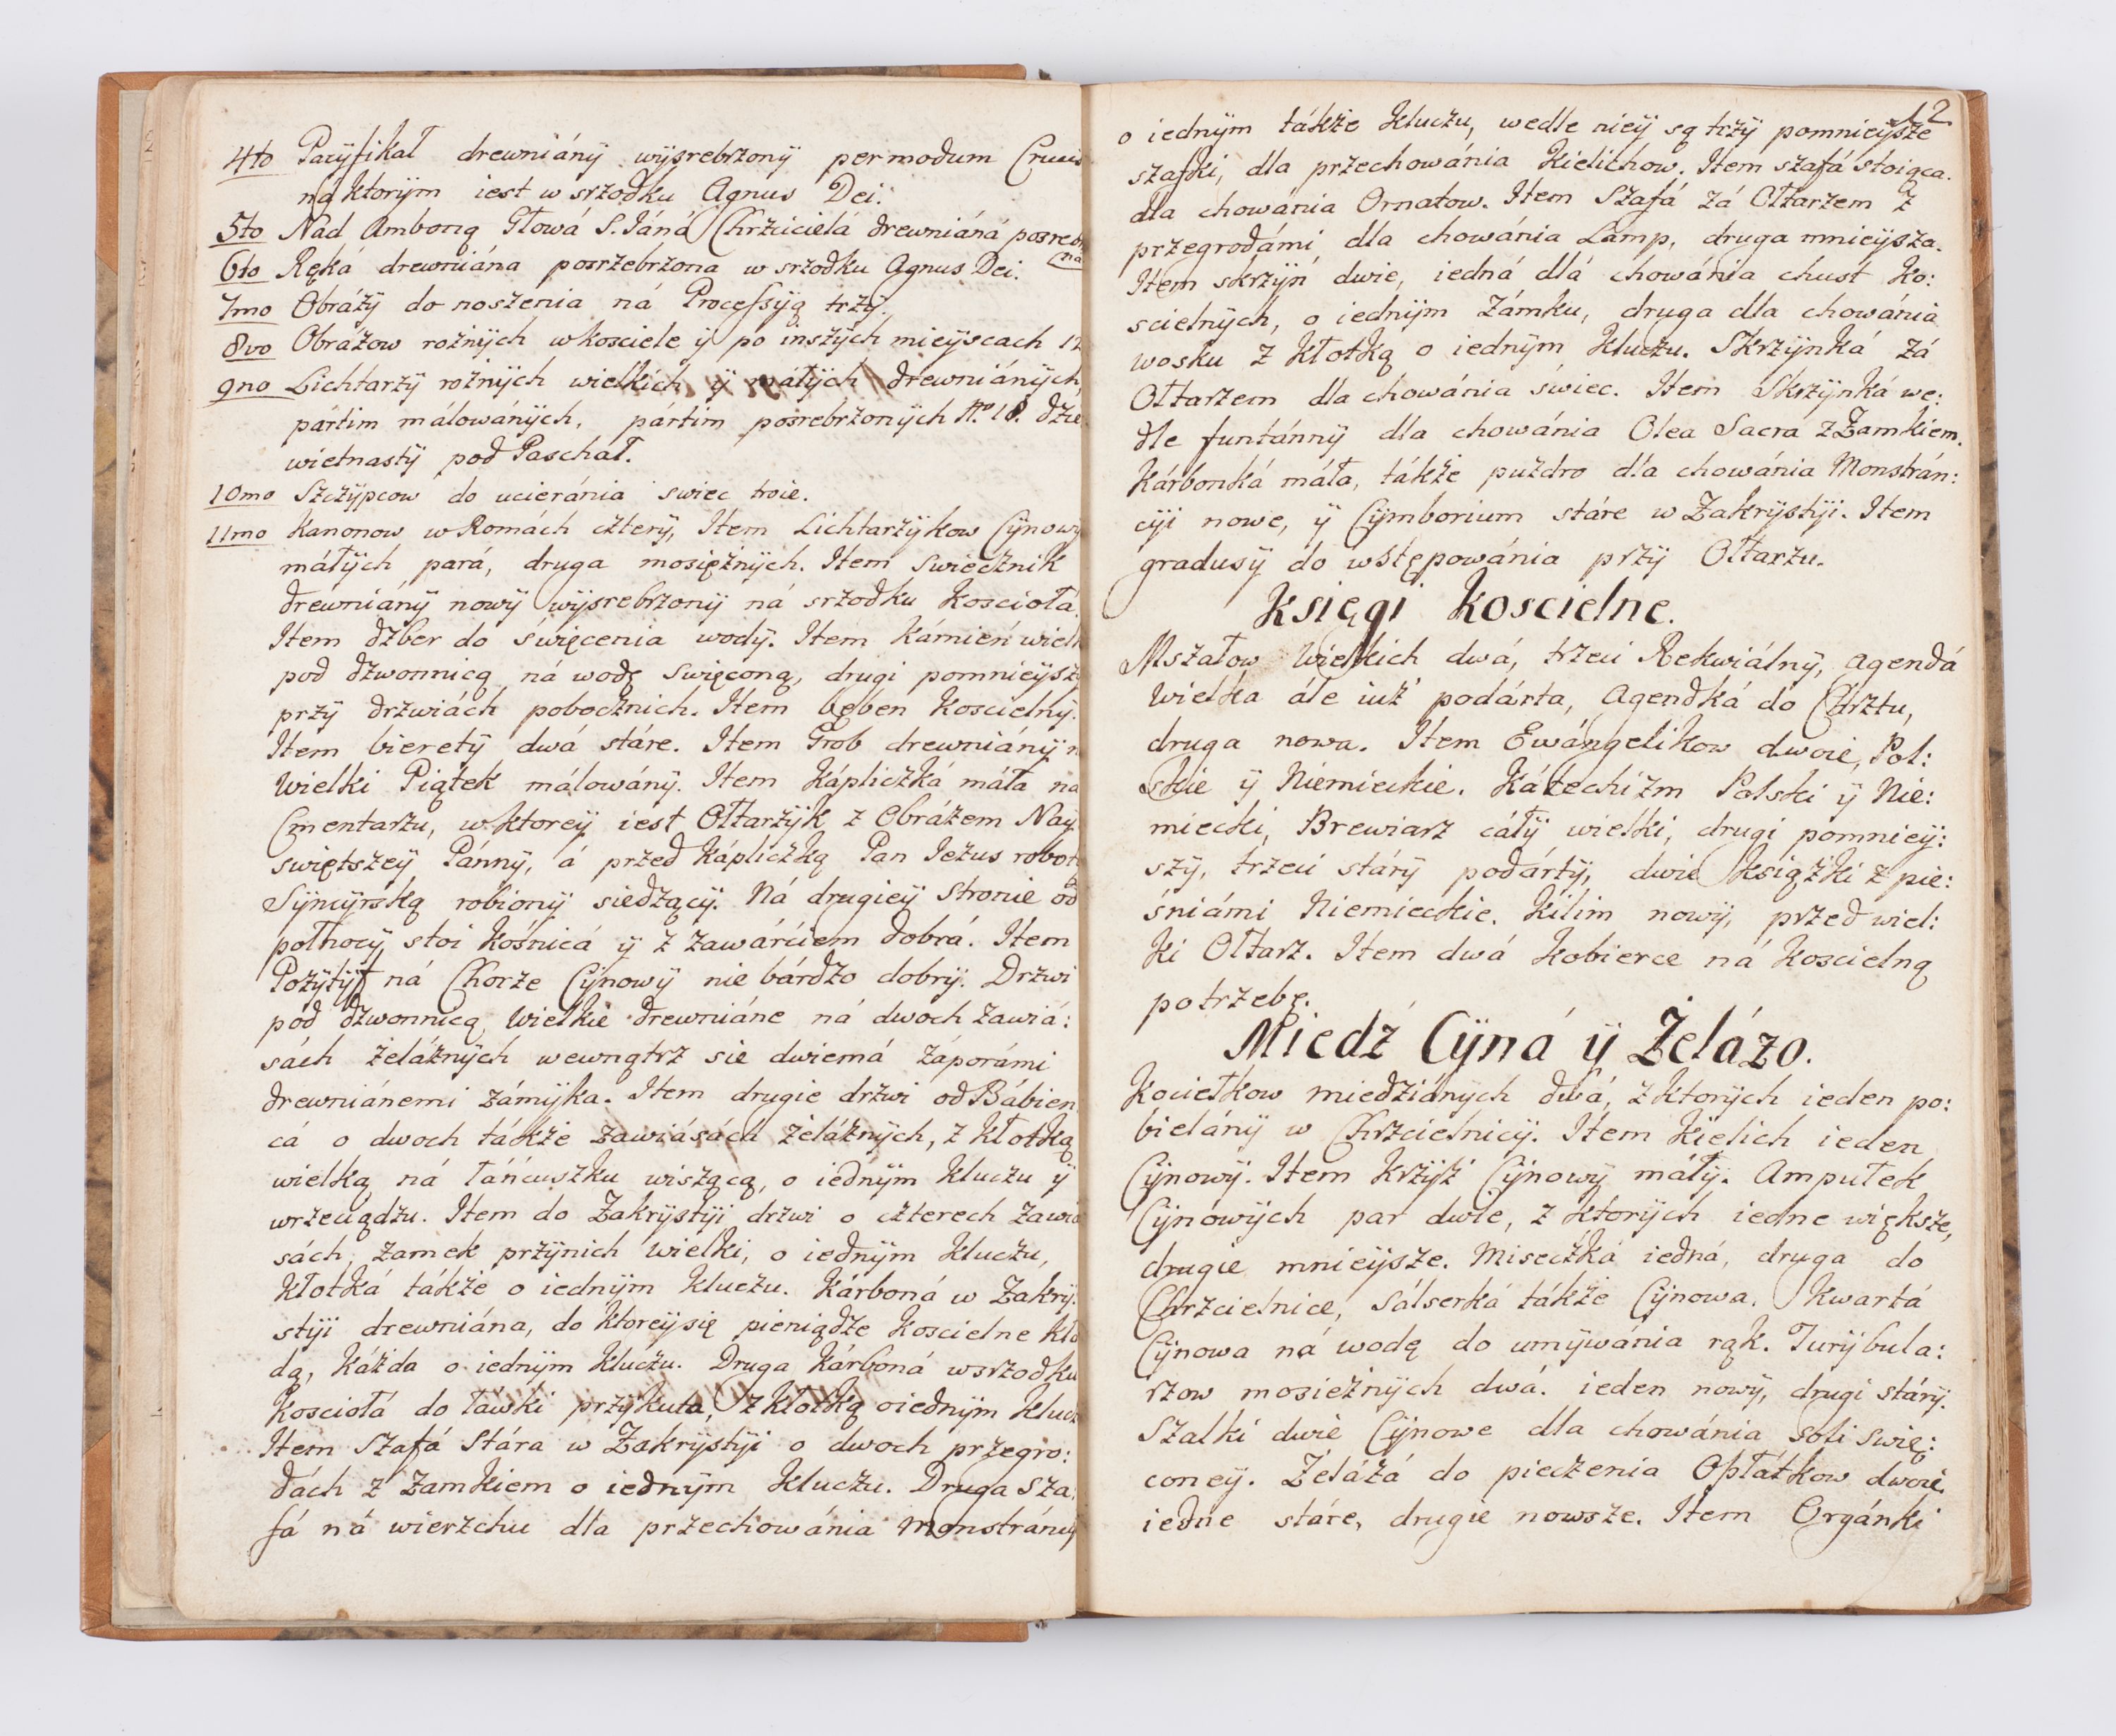 4to Pacyfikał drewniány wysrebrzony per modum Crucis
ná ktorÿm iest w srzodku Agnus Dei.
5to Nad Amboną Głowá S. Jáná Chrzcicielá drewniáná posrebrzo
ná
6to Ręká drewniána posrzebrzona w srzodku Agnus Dei.
7mo Obrázÿ do noszenia ná Processÿą trzÿ.
8vo Obrazow roznÿch w kosciele ÿ po inszÿch mieÿscach 12
9no Lichtarzÿ roznÿch wielkich ÿ máłÿch drewniánÿch,
pártim málowánÿch, pártim posrebrzonÿch No 18. dzie
wietnastÿ pod Paschał.
10mo Szczÿpcow do ucieránia swiec troie.
11mo Kanonow w Romách czterÿ, Item Lichtarzÿkow Cÿnowÿ
máłÿch pará, druga mosięznÿch. Item Swiecznik
drewniánÿ nowÿ wÿsrebrzonÿ ná srzodku Kosciołá.
Item dzber do święcenia wodÿ. Item kámień wielk
pod dzwonnicą ná wodę swięconą, drugi pomnieÿszÿ
przÿ drzwiách pobocznich. Item bęben Koscielnÿ.
Item bieretÿ dwá stáre. Item Grob drewniánÿ n
Wielki Piątek málowánÿ. Item Kápliczká máła na
Cmentarzu, w ktoreÿ iest Ołtarzÿk z Obrázem Naÿ:
swiętszeÿ Pánnÿ, á przed Kápliczką Pan Iezus robotą
Sÿncÿrską robionÿ siedzącÿ. Ná drugieÿ Stronie od
połnocÿ stoi Kośnicá ÿ z zawárćiem dobrá. Item
Pozÿtÿf ná Chorze Cÿnowÿ nie bárdzo dobrÿ. Drzwi
pod dzwonnicą Wielkie drewniáne ná dwoch zawiá:
sách żeláznÿch wewnątrz sie dwiemá záporámi
drewniánemi zámÿka. Item drugie drzwi od Bábien
cá o dwoch tákże zawiásách żeláznÿch, z kłotką
wielką ná łáńcuszku wiszącą, o iednÿm kluczu ÿ
wrzeciądzu. Item do Zakrÿstÿi drzwi o czterech zawiá
sách, zamek przÿnich wielki, o iednÿm kluczu,
Kłotká tákże o iednÿm kluczu. Kárboná w Zakrÿ:
stÿi drewniána, do ktoreÿ się pieniądze koscielne kła
dą, káżda o iednÿm kluczu. Druga kárboná w srzodku
Kosciołá do ławki przÿkuta, z kłotką o iednÿm klucz
Item Szafá Stára w Zakrÿstÿi o dwoch przegro:
dách z zamkiem o iednÿm kluczu. Druga Sza:
fá ná wierzchu dla przechowánia Monstráncÿ
12
o iednÿm tákże kluczu, wedle nieÿ są trzÿ pomnieÿsze
szafki, dla przechowánia Kielichow. Item szafá stoiąca.
dla chowánia Ornatow. Item Szafá zá Ołtarzem z
przegrodámi dla chowánia Lamp, druga mnieÿsza.
Item skrzÿń dwie, iedná dlá chowánia chust ko:
scielnÿch, o iednÿm zámku, druga dla chowánia
wosku z kłotką o iednÿm kluczu. Skrzÿnká zá
Ołtarzem dla chowánia świec. Item Skrzÿnká we:
dle funtánnÿ dla chowánia Olea Sacra z Zamkiem.
Kárbonká máła, tákże puzdro dla chowánia Monstrán:
cÿi nowe, ÿ Cÿmborium stáre w Zakrÿstÿi. Item
gradusÿ do wstępowánia przÿ Ołtarzu.
Księgi Koscielne.
Mszałow Wielkich dwá, trzeci Rekwiálnÿ, Agendá
Wielka ále iuż podárta, Agendká do Chrztu,
druga nowa. Item Ewángelikow dwoie, Pol:
skie ÿ Niemieckie. Kátechizm Polski ÿ Nie:
miecki, Brewiarz cáłÿ wielki, drugi pomnieÿ:
szÿ, trzeci stárÿ podártÿ, dwie książki z pie:
śniámi Niemieckie. Kilim nowÿ, przed wiel:
ki Ołtarz. Item dwá kobierce ná Koscielną
potrzebę.
Miedź Cÿná ÿ Żelázo.
Kociełkow miedziánÿch dwá, z ktorÿch ieden po:
bielánÿ w Chrzcielnicÿ. Item Kielich ieden
Cÿnowÿ. Item Krzÿż Cÿnowÿ máłÿ. Ampułek
Cÿnowÿch par dwie, z ktorÿch iedne większe,
drugie mnieÿsze. Miseczká iedná, druga do
Chrzcielnice, Sálserká tákże Cÿnowa. Kwartá
Cÿnowa ná wodę do umÿwánia rąk. Turÿbula:
rzow mosieznÿch dwá. ieden nowÿ, drugi stárÿ.
Szalki dwie Cÿnowe dla chowánia soli swię:
coneÿ. Żelázá do pieczenia Opłatkow dwoie.
iedne stáre, drugie nowsze. Item Orgánki